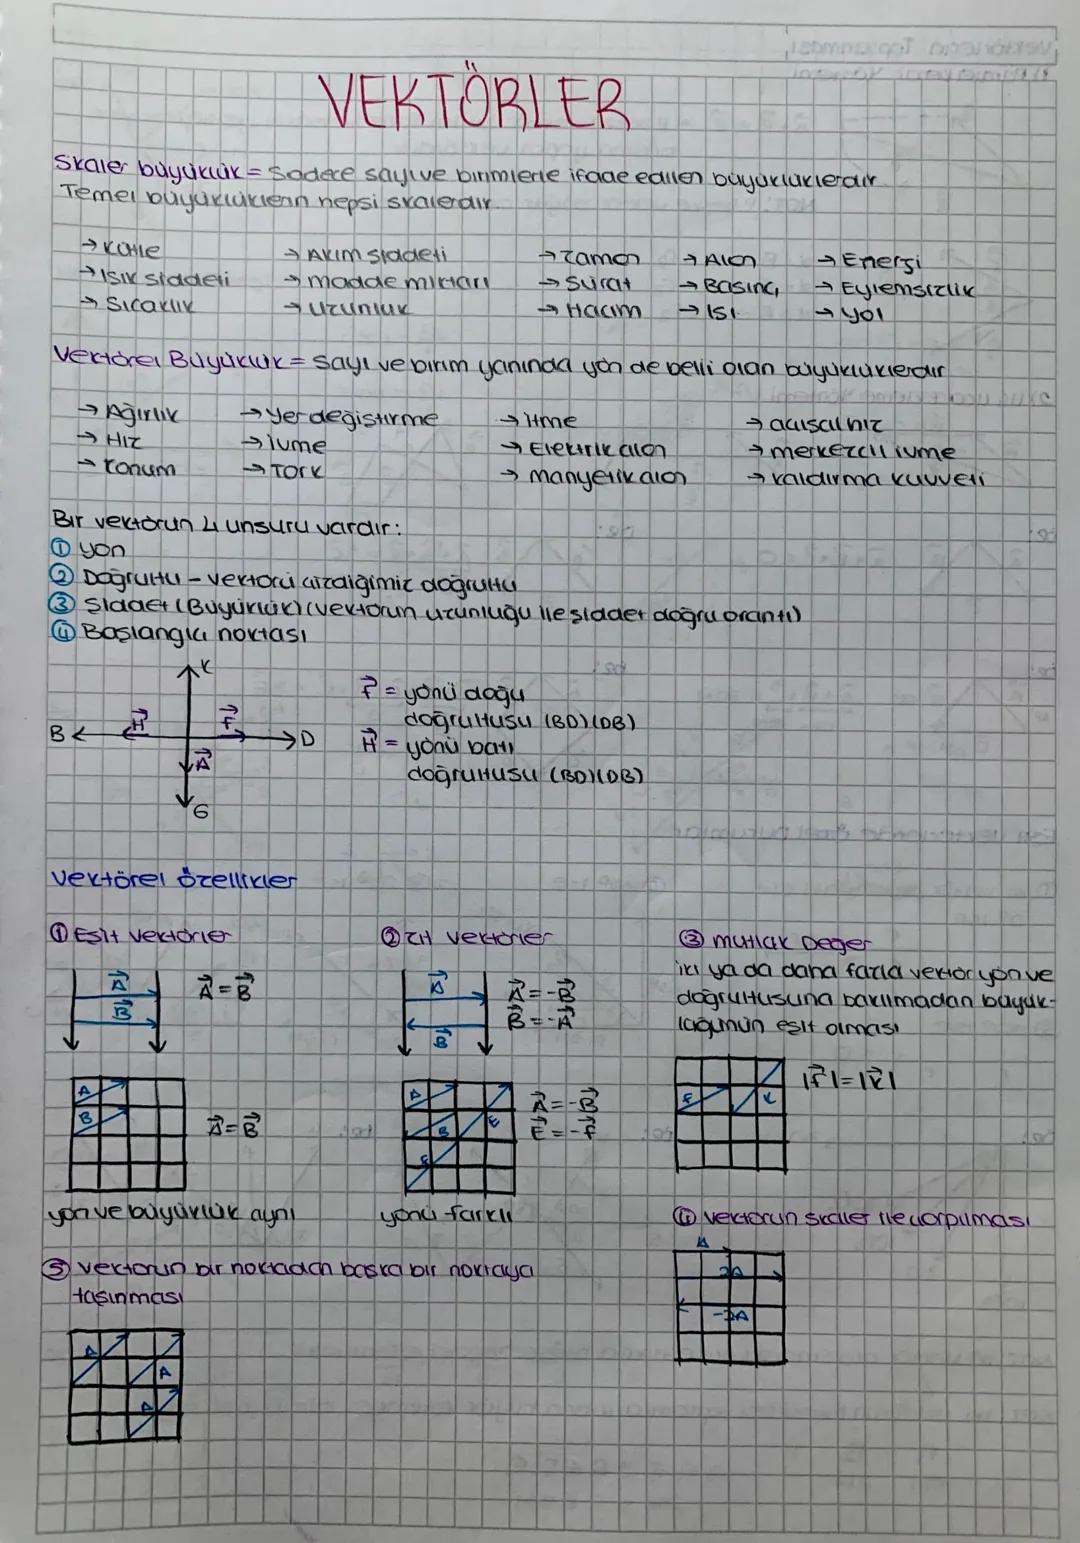 VEKTÖRLER
Skaler büyüklük = Sadece sayı ve birimlerle ifade edilen büyüklüklerdir.
Temel büyüklüklerin hepsi skalerdir.
→ Kütle → Akım şiddeti → Zaman → Alan → Enerji
→ Işık şiddeti → madde miktarı → Sürat → Basınç → Eylemsizlik
→ Sıcaklık → Uzunluk → Hacim → Isı → yol
Vektörel Büyüklük = Sayı ve birim yanında yön de belli olan büyüklüklerdir.
→ Ağırlık → Yer değiştirme → itme → açısal hız
→ Hız → ivme → Elektrik alan → merkezcil ivme
→ Konum → Tork → manyetik alan → kaldırma kuvveti
Bir vektörün 4 unsuru vardır:
① yön
② Doğrultu - vektörü çizdiğimiz doğrultu
③ Şiddet (Büyüklük) (vektörün uzunluğu ile şiddet doğru orantı)
④ Başlangıç noktası
K
B H F D
A
G
F = yönü doğu
doğrultusu (BD)(DB)
H = yönü batı
doğrultusu (BD)(DB)
Vektörel özellikler
① Eşit vektörler
A
B
A = B
A
B
A = B
yön ve büyüklük aynı
② Zıt vektörler
A
B
A = -B
B = -A
A
B
E
F
A = -B
E = -F
yönü farklı
③ mutlak Değer
iki ya da daha fazla vektör yön ve
doğrultusuna bakılmadan büyük-
lüğünün eşit olması
F K
|F| = |K|
④ vektörün skaler ile çarpılması
A
2A
⑤ vektörün bir noktadan başka bir noktaya
taşınması
A
A
A